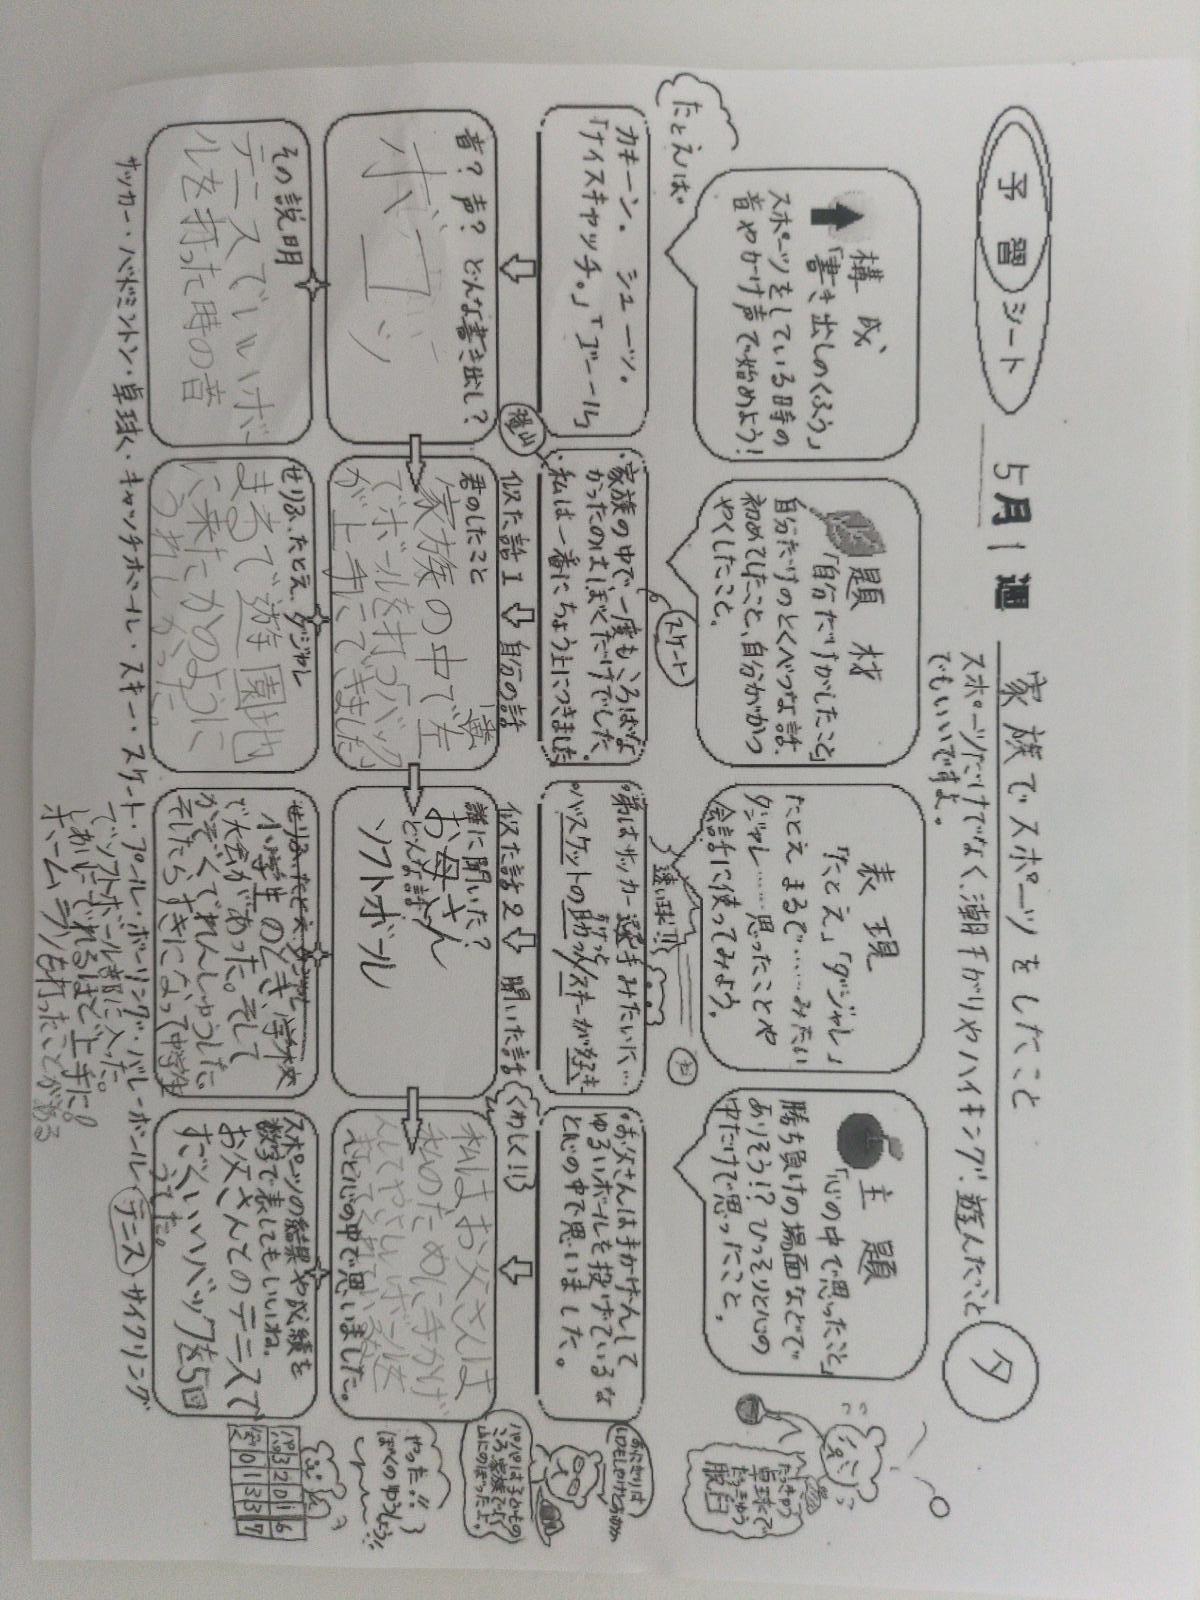 予習シート
5月1週
家族でスポーツをしたこと
スポーツだけでなく、潮干がりやハイキング、遊んたこと
でもいいですよ。
夕
構成
「書き出しのくふう」
スポーツをしている時の
音やかけ声で始めよう!
たとえば
カキーン。シューッ。
「ナイスキャッチ。」「ゴール」
音?声?どんな書き出し?
ボコーン
その説明
テニスでいいボー
ルを打った時の音
題材
「自分だけがしたこと」
自分だけのとくべつな話、
初めてしたこと、自分がかつ
やくしたこと。
スケート
・家族の中で一度もころばな
かったのはぼくだけでした。
・私は一番にちょう上につきました
登山
似た話1
自分の話
君のしたこと
家族の中で左
でボールを打つバック
が上手にできました
せりふ、たとえ、ダジャレ
まるで遊園地
に来たかのように
うれしかった。
表現
「たとえ」「ダジャレ」
たとえ まるで……みたい
ダジャレ……思ったことや
会話に使ってみよう。
速い球!!
・弟はサッカー選手みたいに…
・バスケットの助っ人
スキーが好き
似た話2
聞いた話
誰に聞いた?
お母さん
どんな話?
ソフトボール
せりふ、たとえ、ダジャレ
小学生のとき、学校
で大会があった。そして
かぞくでれんしゅうした
そしたらすきになって中学生
でソフトボール部に入った。
しあいにでれるほど上手に。
ホームランを打ったことがある
主題
「心の中で思ったこと」
勝ち負けの場面などで
ありそう!?ひっそりと心の
中だけで思ったこと。
・お父さんは手かげんして
ゆるいボールを投げているな
と心の中で思いました。
くわしく!!
私はお父さんは
私のために手かげ
んしてやさしいボールを
んと心の中で思いました。
スポーツの結果や成績を
数字で表してもいいね。
お父さんとのテニスで
すごくいいバックを5回
うてた。
サッカー・バドミントン・卓球・キャッチボール・スキー・スケート・プール・ボーリング・バレーボール・テニス・サイクリング
卓球で
だっきゅう
脱臼
パパはころ
山にのぼったよ。
やった!!
ぼくのゆうしょう!!